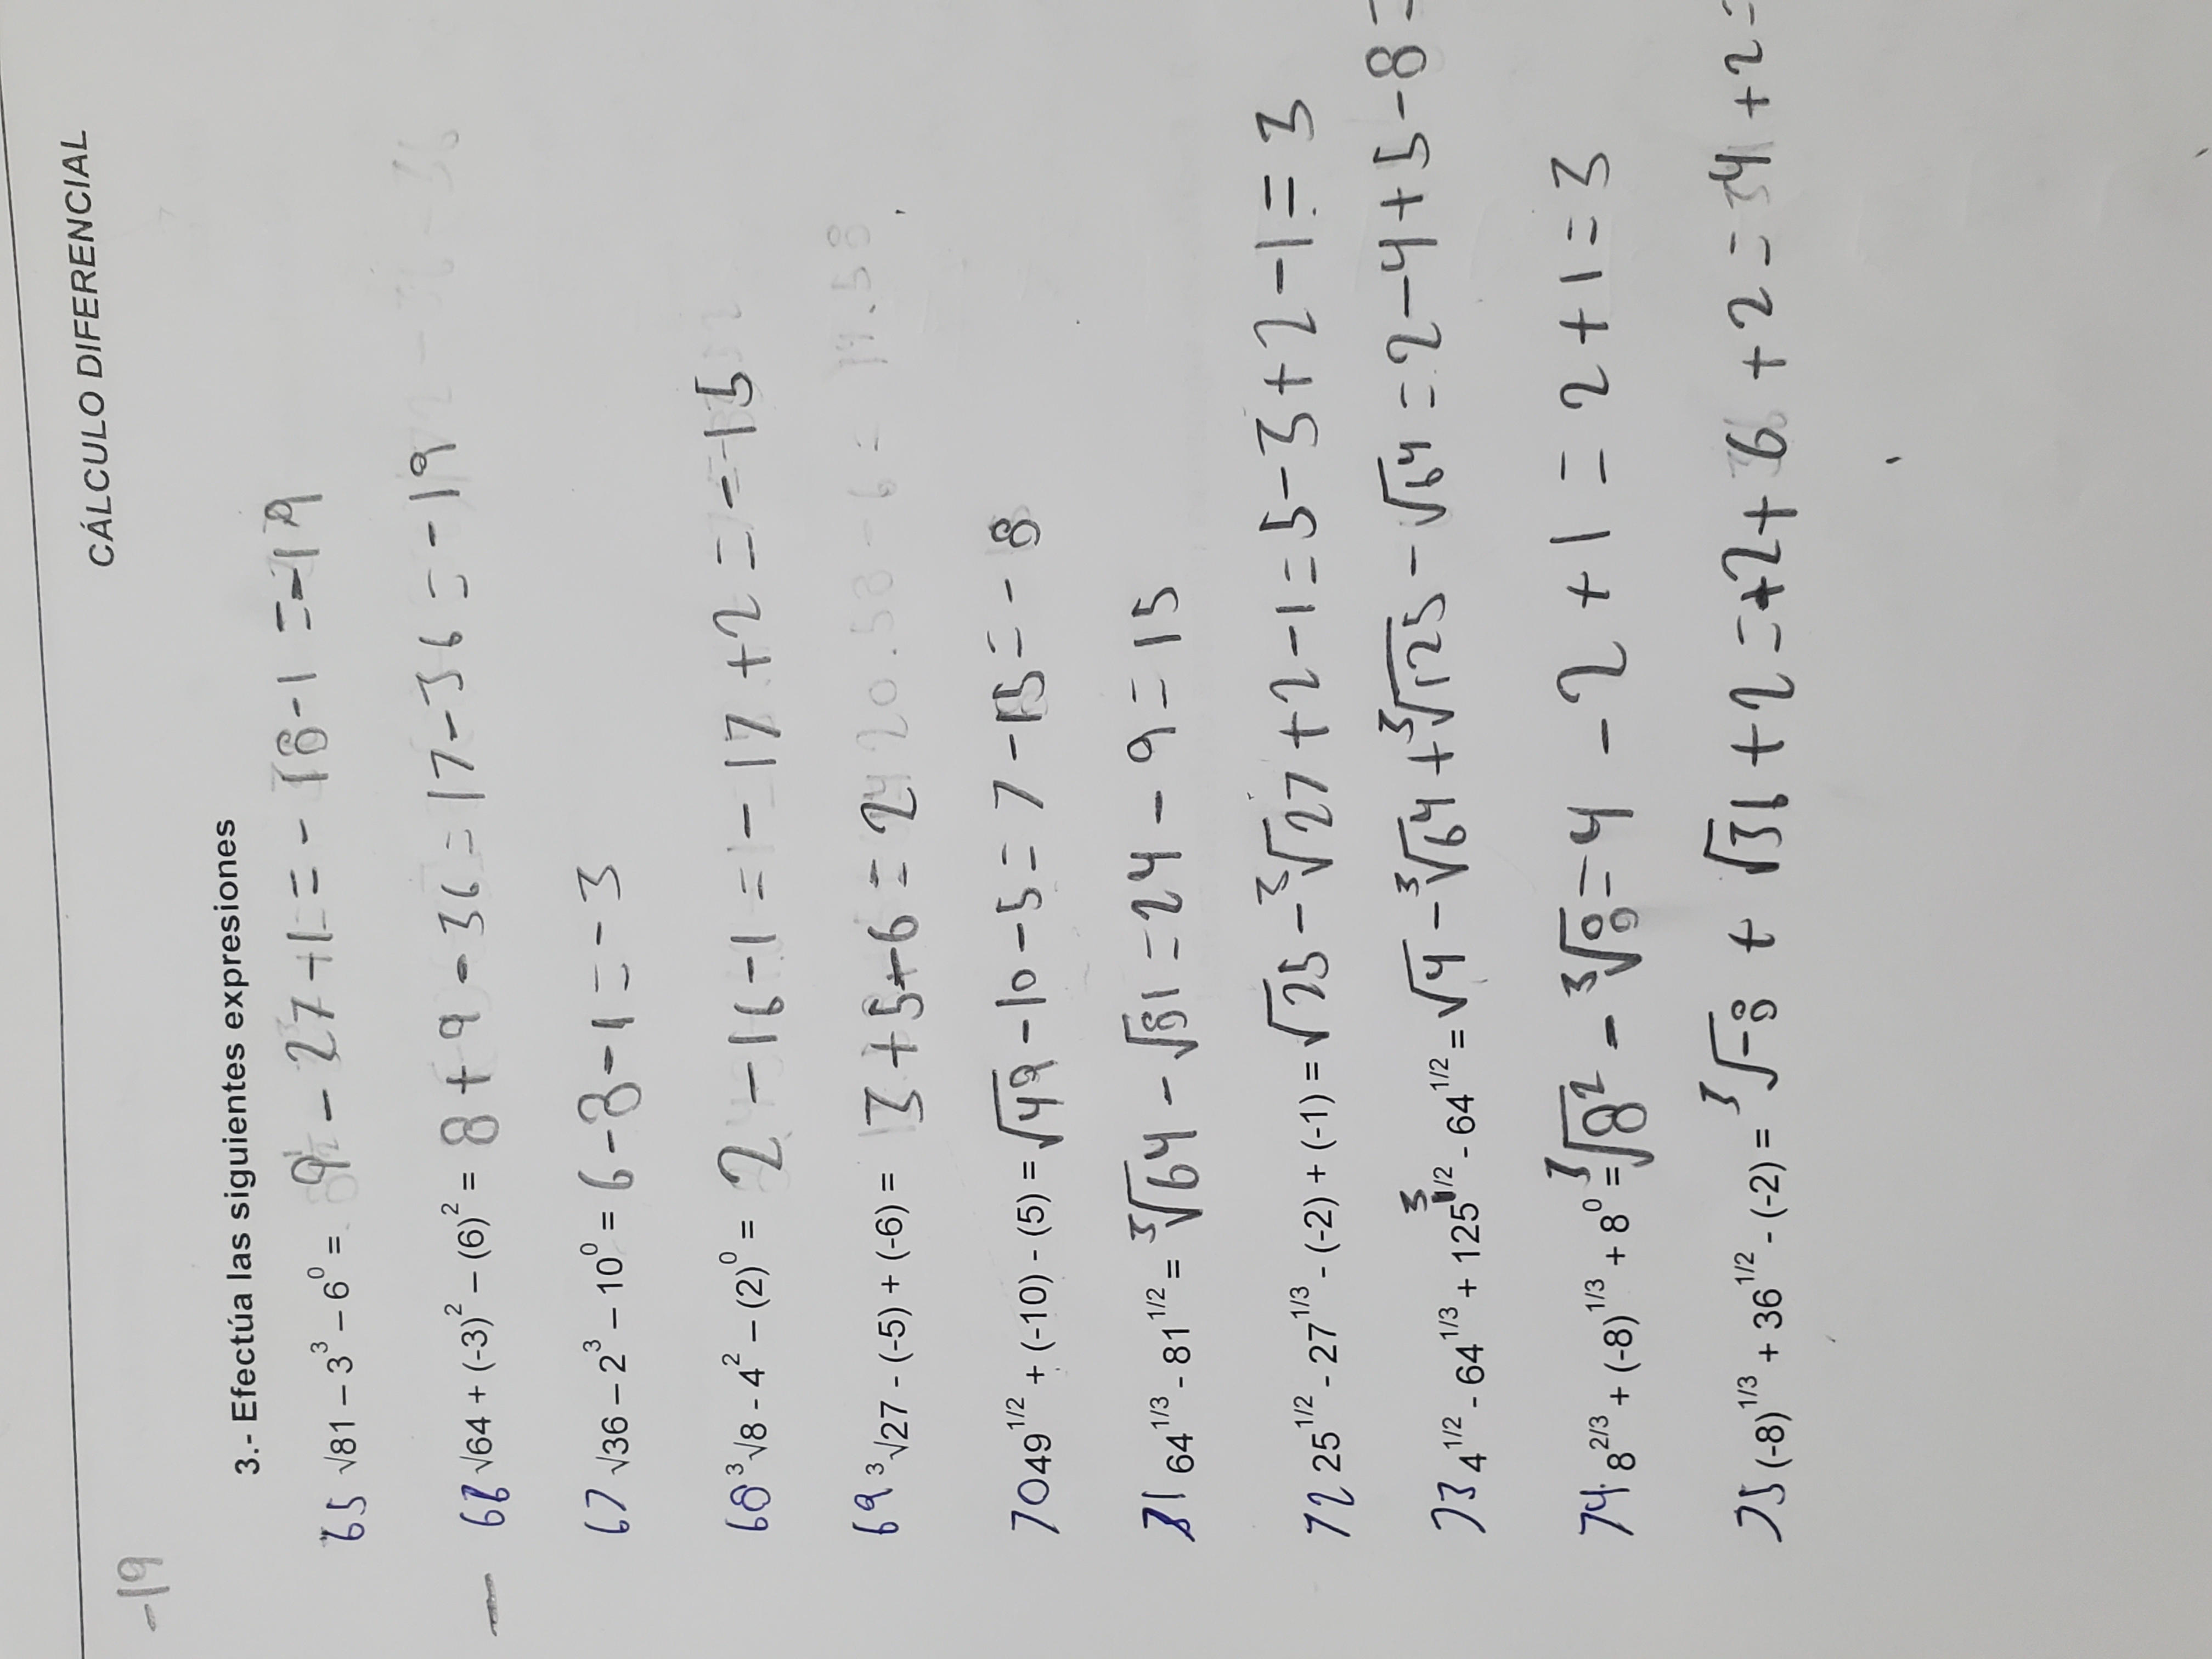 CÁLCULO DIFERENCIAL
-19
3.- Efectúa las siguientes expresiones
65 √81 – 3³ – 6⁰ = 9 - 27 + 1 = - 18 - 1 = -19
66 √64 + (-3)² – (6)² = 8 + 9 - 36 = 17 - 36 = -19
67 √36 – 2³ – 10⁰ = 6 - 8 - 1 = - 3
68 ³√8 - 4² – (2)⁰ = 2 - 16 - 1 = - 17 + 2 = - 15
69 ³√27 - (-5) + (-6) = 3 + 5 + 6 = 2
70 49^1/2 + (-10) - (5) = √49 - 10 - 5 = 7 - 15 = - 8
71 64^1/3 - 81^1/2 = ³√64 - √81 = 24 - 9 = 15
72 25^1/2 - 27^1/3 - (-2) + (-1) = √25 - ³√27 + 2 - 1 = 5 - 3 + 2 - 1 = 3
73 4^1/2 - 64^1/3 + 125^1/2 - 64^1/2 = √4 - ³√64 + ³√125 - √64 = 2 - 4 + 5 - 8 =
74. 8^2/3 + (-8)^1/3 + 8⁰ = ³√8² - ³√8 = 4 - 2 + 1 = 2 + 1 = 3
75 (-8)^1/3 + 36^1/2 - (-2) = ³√-8 + √36 + 2 = +2 + 6 + 2 = 4 + 2 =